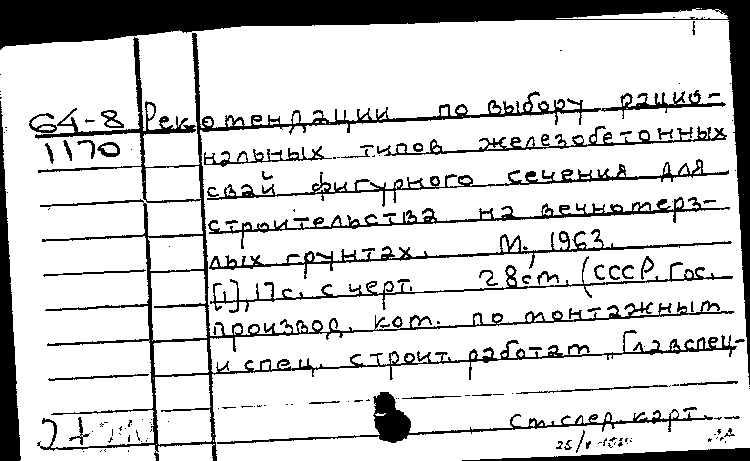 64-8 Рекомендации по выбору рацио-
1170 нальных типов железобетонных
свай фигурного сечения для
строительства на вечномерз-
лых грунтах. М., 1963.
[1], 17 с. с черт. 28 см. (СССР. Гос.
производ. ком. по монтажным
и спец. строит. работам „Главспец-
См. след. карт.